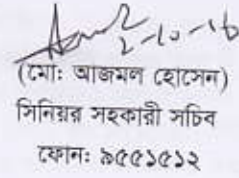 2-10-16
(মোঃ আজমল হোসেন)
সিনিয়র সহকারী সচিব
ফোনঃ ৯৫৫১৫১২